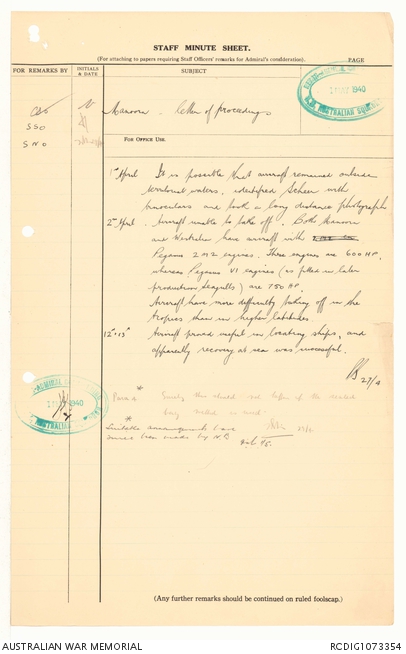 STAFF MINUTE SHEET.
(For attaching to papers requiring Staff Officers' remarks for Admiral's consideration).
PAGE
FOR REMARKS BY
INITIALS & DATE
SUBJECT
SSO
SNO
Manoora - letter of proceedings
1 MAY 1940
AUSTRALIAN SQUADRON
FOR OFFICE USE.
1st April It is possible that aircraft remained outside
territorial waters, identified Scheer with
binoculars and took a long distance photograph
2nd April. Aircraft unable to take off. Both Manoora
and Westralia have aircraft with
Pegasus 2 M2 engines. These engines are 600 HP.
whereas Pegasus VI engines (as fitted in later
production Seagulls) are 750 HP.
Aircraft have more difficulty taking off in the
tropics than in higher latitudes.
12th-13th Aircraft proved useful in locating ships, and
apparently recovery at sea was successful.
27/4
REAR-ADMIRAL
1 MAY 1940
AUSTRALIAN SQUADRON
Para 4 * Surely this should read
*
Suitable arrangements have
since been made by N.B
(Any further remarks should be continued on ruled foolscap.)
AUSTRALIAN WAR MEMORIAL
RCDIG1073354